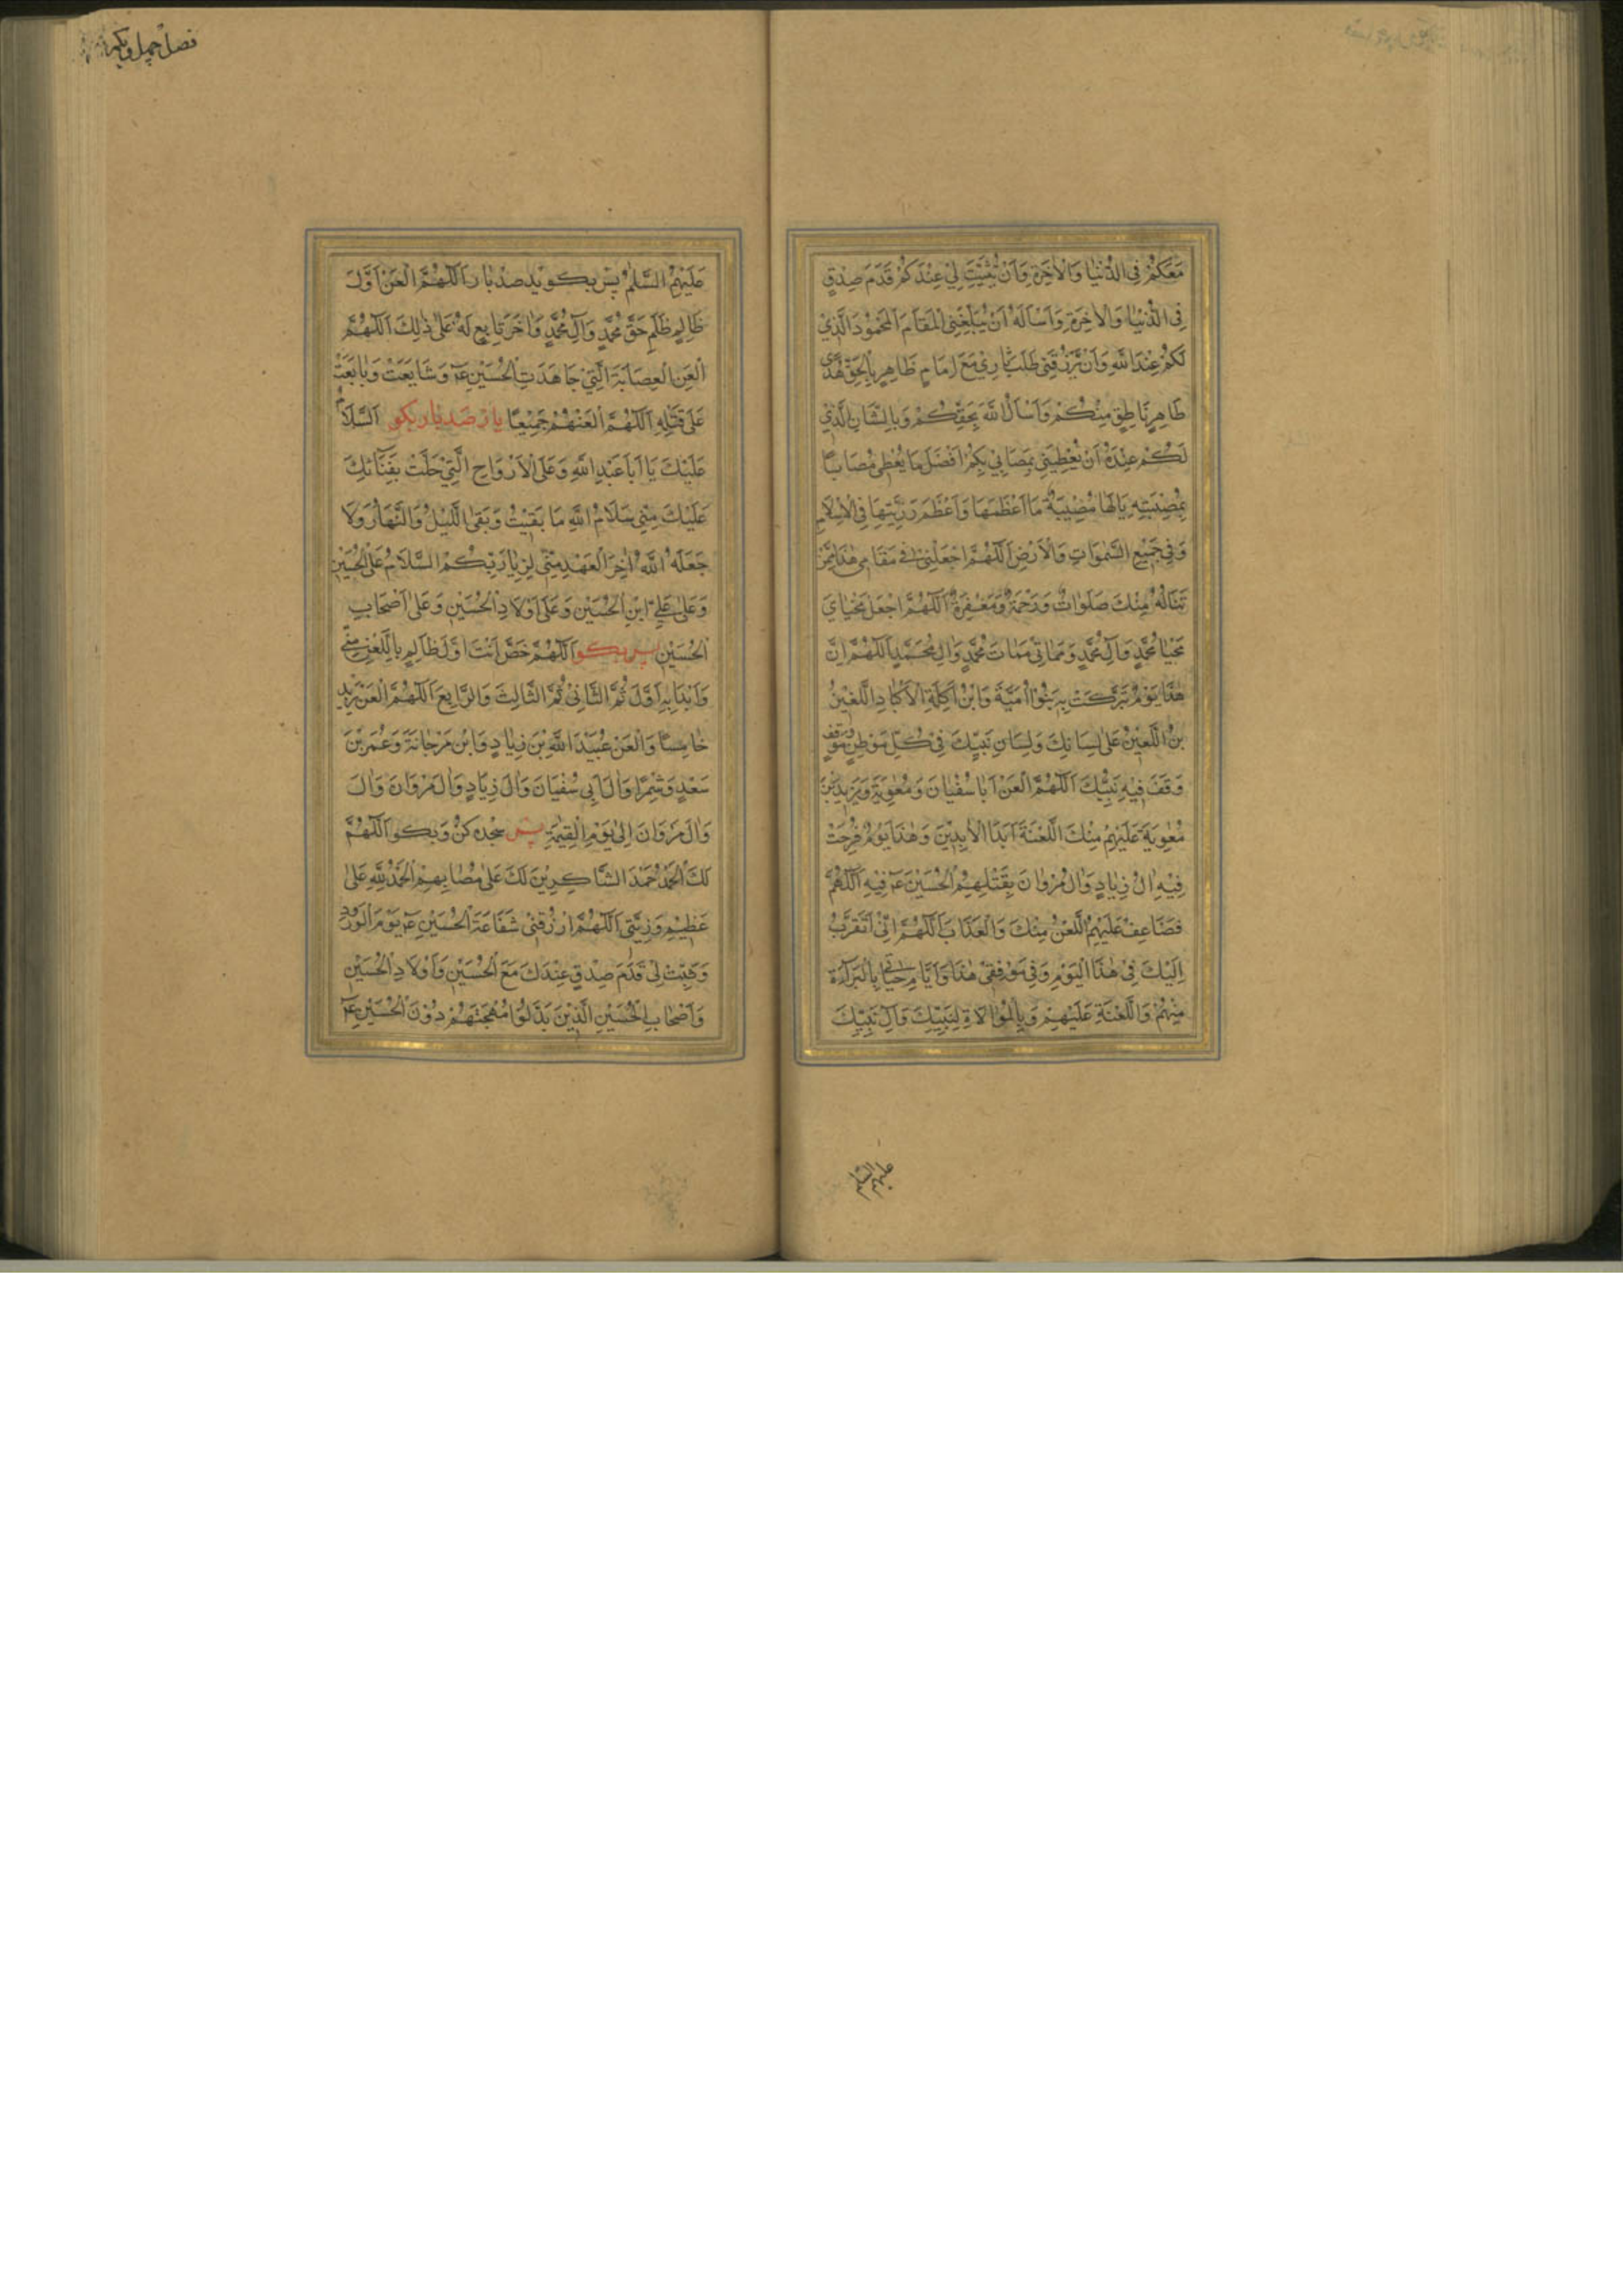 مَعَكُمْ فِى الدُّنْيَا وَالْاٰخِرَةِ وَاَنْ يُثَبِّتَ لِىْ عِنْدَكُمْ قَدَمَ صِدْقٍ
فِى الدُّنْيَا وَالْاٰخِرَةِ وَاَسْاَلُهُ اَنْ يُبَلِّغَنِى الْمَقَامَ الْمَحْمُوْدَ الَّذِىْ
لَكُمْ عِنْدَ اللّٰهِ وَاَنْ يَرْزُقَنِى طَلَبَ ثَارِىْ مَعَ اِمَامٍ ظَاهِرٍ بِالْحَقِّ هُدًى
طَاهِرٍ نَاطِقٍ مِنْكُمْ وَاَسْاَلُ اللّٰهَ بِحَقِّكُمْ وَبِالشَّانِ الَّذِىْ
لَكُمْ عِنْدَهُ اَنْ يُعْطِيَنِى بِمُصَابِىْ بِكُمْ اَفْضَلَ مَا يُعْطِى مُصَابًا
بِمُصِيْبَتِهِ يَالَهَا مُصِيْبَةً مَا اَعْظَمَهَا وَاَعْظَمَ رَزِيَّتِهَا فِى الْاِسْلَامِ
وَفِى جَمِيْعِ السَّمٰوَاتِ وَالْاَرْضِ اَللّٰهُمَّ اجْعَلْنِىْ فِى مَقَامِى هٰذَا مِمَّنْ
تَنَالُهُ مِنْكَ صَلَوَاتٌ وَرَحْمَةٌ وَمَغْفِرَةٌ اَللّٰهُمَّ اجْعَلْ مَحْيَاىَ
مَحْيَا مُحَمَّدٍ وَآلِ مُحَمَّدٍ وَمَمَاتِىْ مَمَاتَ مُحَمَّدٍ وَآلِ مُحَمَّدٍ اَللّٰهُمَّ اِنَّ
هٰذَا يَوْمٌ تَبَرَّكَتْ بِهِ بَنُوْا اُمَيَّةَ وَابْنُ اٰكِلَةِ الْاَكْبَادِ اللَّعِيْنُ
بْنُ اللَّعِيْنِ عَلٰى لِسَانِكَ وَلِسَانِ نَبِيِّكَ فِىْ كُلِّ مَوْطِنٍ وَمَوْقِفٍ
وَقَفَ فِيْهِ نَبِيُّكَ اَللّٰهُمَّ الْعَنْ اَبَا سُفْيَانَ وَمُعٰوِيَةَ وَيَزِيْدَ بْنَ
مُعٰوِيَةَ عَلَيْهِمْ مِنْكَ اللَّعْنَةُ اَبَدَ الْاٰبِدِيْنَ وَهٰذَا يَوْمٌ فَرِحَتْ
فِيْهِ اٰلُ زِيَادٍ وَاٰلُ مَرْوَانَ بِقَتْلِهِمُ الْحُسَيْنَ ع فِيْهِ اَللّٰهُمَّ
فَضَاعِفْ عَلَيْهِمُ اللَّعْنَ مِنْكَ وَالْعَذَابَ اَللّٰهُمَّ اِنِّىْ اَتَقَرَّبُ
اِلَيْكَ فِىْ هٰذَا الْيَوْمِ وَفِى مَوْقِفِىْ هٰذَا وَاَيَّامِ حَيَاتِى بِالْبَرَآءَةِ
مِنْهُمْ وَاللَّعْنَةِ عَلَيْهِمْ وَبِالْمُوَالَاةِ لِنَبِيِّكَ وَآلِ نَبِيِّكَ
عليهم السلم
فصل چهل ويكم
عَلَيْهِمُ السَّلٰمُ پس بكويد صد بار اَللّٰهُمَّ الْعَنْ اَوَّلَ
ظَالِمٍ ظَلَمَ حَقَّ مُحَمَّدٍ وَآلِ مُحَمَّدٍ وَاٰخِرَ تَابِعٍ لَهُ عَلٰى ذٰلِكَ اَللّٰهُمَّ
الْعَنِ الْعِصَابَةَ الَّتِىْ جَاهَدَتِ الْحُسَيْنَ ع وَشَايَعَتْ وَبَايَعَتْ
عَلٰى قَتْلِهِ اَللّٰهُمَّ الْعَنْهُمْ جَمِيْعًا باز صد بار بكو اَلسَّلَامُ
عَلَيْكَ يَا اَبَا عَبْدِ اللّٰهِ وَعَلَى الْاَرْوَاحِ الَّتِىْ حَلَّتْ بِفِنَائِكَ
عَلَيْكَ مِنِّى سَلَامُ اللّٰهِ مَا بَقِيْتُ وَبَقِىَ اللَّيْلُ وَالنَّهَارُ وَلَا
جَعَلَهُ اللّٰهُ اٰخِرَ الْعَهْدِ مِنِّىْ لِزِيَارَتِكُمْ السَّلَامُ عَلَى الْحُسَيْنِ
وَعَلٰى عَلِىِّ ابْنِ الْحُسَيْنِ وَعَلٰى اَوْلَادِ الْحُسَيْنِ وَعَلٰى اَصْحَابِ
الْحُسَيْنِ پس بكو اَللّٰهُمَّ خُصَّ اَنْتَ اَوَّلَ ظَالِمٍ بِاللَّعْنِ مِنِّى
وَابْدَا بِهِ اَوَّلَ ثُمَّ الثَّانِىْ ثُمَّ الثَّالِثَ وَالرَّابِعَ اَللّٰهُمَّ الْعَنْ يَزِيْدَ
خَامِسًا وَالْعَنْ عُبَيْدَ اللّٰهِ بْنَ زِيَادٍ وَابْنَ مَرْجَانَةَ وَعُمَرَ بْنَ
سَعْدٍ وَشِمْرًا وَاٰلَ اَبِى سُفْيَانَ وَاٰلَ زِيَادٍ وَاٰلَ مَرْوَانَ وَاٰلَ
وَاٰلَ مَرْوَانَ اِلٰى يَوْمِ الْقِيٰمَةِ پس سجده كن وبكو اَللّٰهُمَّ
لَكَ الْحَمْدُ حَمْدَ الشَّاكِرِيْنَ لَكَ عَلٰى مُصَابِهِمْ اَلْحَمْدُ لِلّٰهِ عَلٰى
عَظِيْمِ رَزِيَّتِى اَللّٰهُمَّ ارْزُقْنِىْ شَفَاعَةَ الْحُسَيْنِ ع يَوْمَ الْوُرُوْدِ
وَثَبِّتْ لِىْ قَدَمَ صِدْقٍ عِنْدَكَ مَعَ الْحُسَيْنِ وَاَوْلَادِ الْحُسَيْنِ
وَاَصْحَابِ الْحُسَيْنِ الَّذِيْنَ بَذَلُوْا مُهْجَتَهُمْ دُوْنَ الْحُسَيْنِ ع